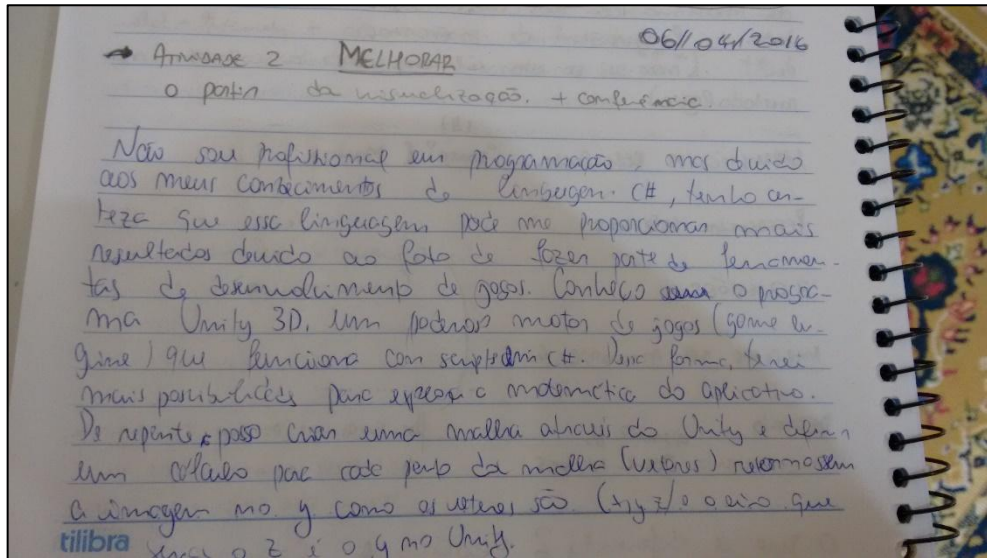 06/04/2016
→ ATIVIDADE 2 MELHORAR
a partir da visualização. + conferência
Não sou profissional em programação, mas devido
aos meus conhecimentos de linguagem C#, tenho cer-
teza que essa linguagem pode me proporcionar mais
resultados devido ao fato de fazer parte de ferramen-
tas de desenvolvimento de jogos. Conheço o progra-
ma Unity 3D, um poderoso motor de jogos (game en-
gine) que funciona com scripts em C#. Dessa forma, terei
mais possibilidades para a matemática do aplicativo.
De repente posso criar uma malha através do Unity e definir
um cálculo para cada ponto da malha (vetores) retornassem
a imagem no y. como os vetores são (x, y z) e o eixo que
o z é o y no Unity.
tilibra